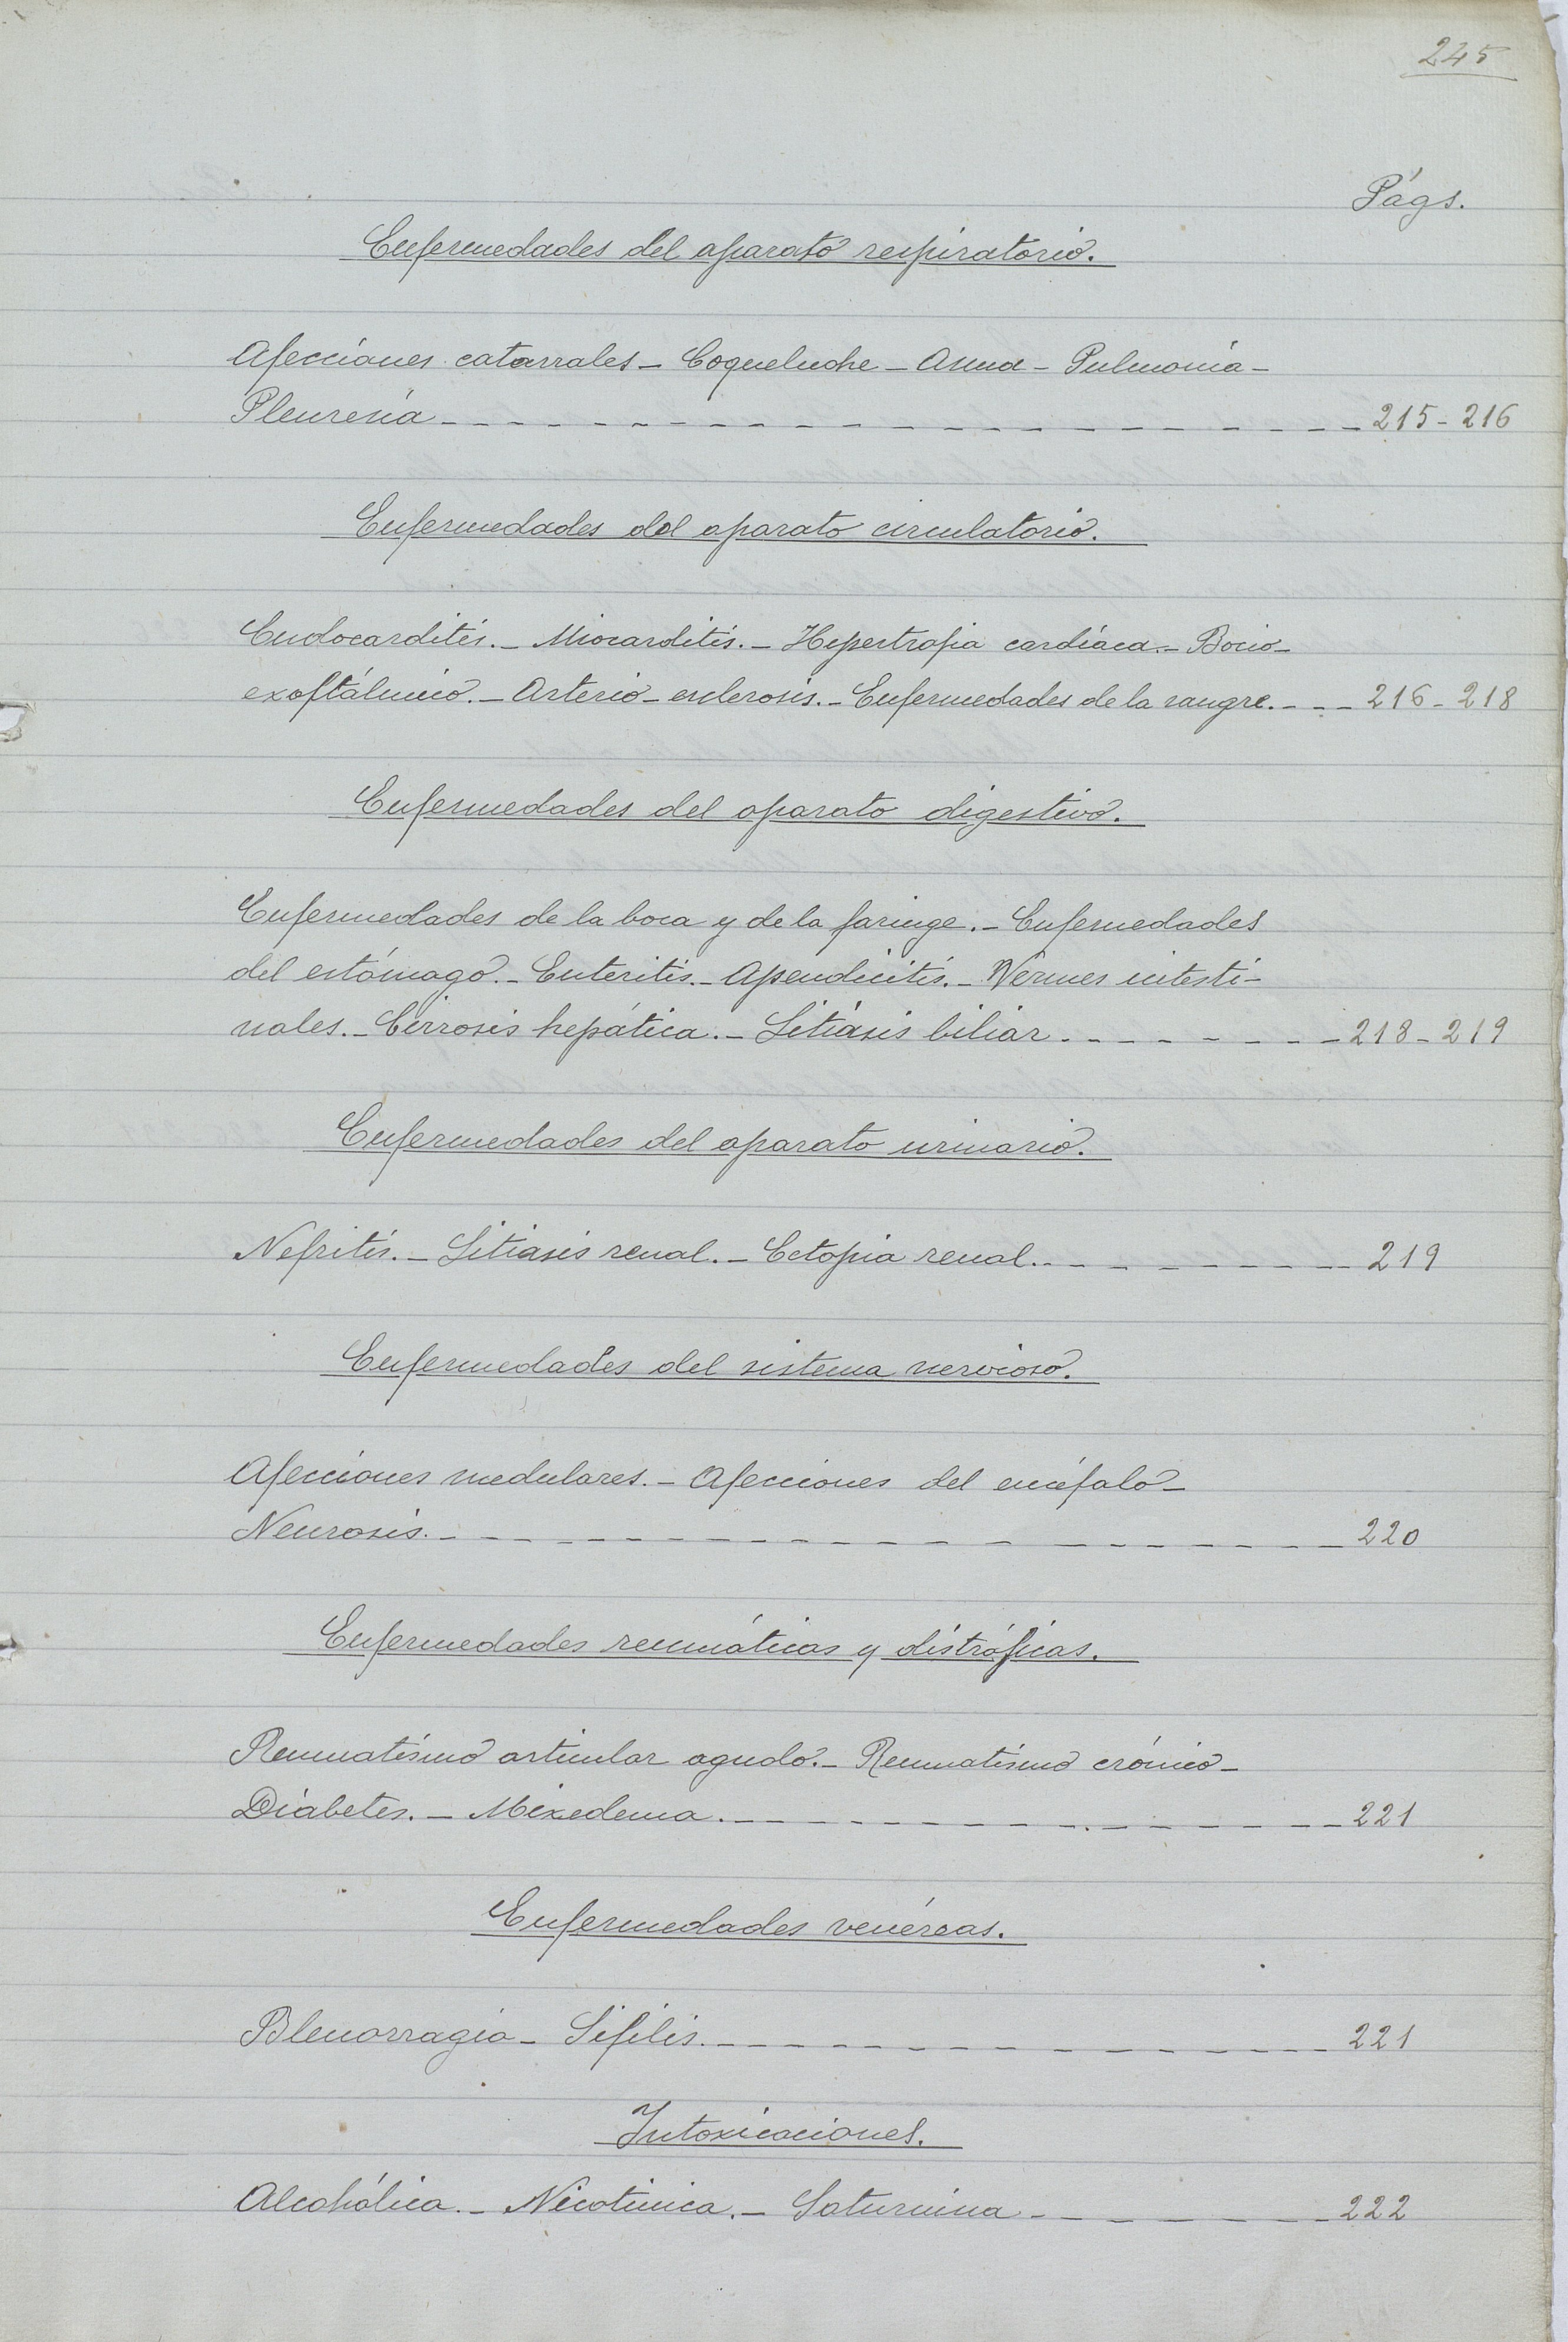 245
Págs.
Enfermedades del aparato respiratorio.
Afecciones catarrales - Coqueluche - Asma - Pulmonía -
Pleuresía - - - - - - - - - - - - - - - - - - - - 215 - 216
Enfermedades del aparato circulatorio.
Endocarditis. - Miocarditis. - Hipertrofia cardíaca. - Bocio -
exoftálmico. - Arterio - esclerosis. - Enfermedades de la sangre. - - - 216 - 218
Enfermedades del aparato digestivo.
Enfermedades de la boca y de la faringe. - Enfermedades
del estómago. - Enteritis. - Apendicitis. - Vermes intesti-
nales. - Cirrosis hepática. - Litiásis biliar - - - - - - - - 218 - 219
Enfermedades del aparato urinario.
Nefritis. - Litiasis renal. - Ectopia renal. - - - - - - - - - 219
Enfermedades del sistema nervioso.
Afecciones medulares. - Afecciones del encéfalo -
Neurosis. - - - - - - - - - - - - - - - - - - - - 220
Enfermedades reumáticas y distróficas.
Reumatismo articular agudo. - Reumatismo crónico -
Diabetes. - Mixedema. - - - - - - - - - - - - - - - 221
Enfermedades venéreas.
Blenorragia - Sífilis. - - - - - - - - - - - - - - - - - 221
Intoxicaciones.
Alcohólica. - Nicotinica. - Saturnina - - - - - - - - 222